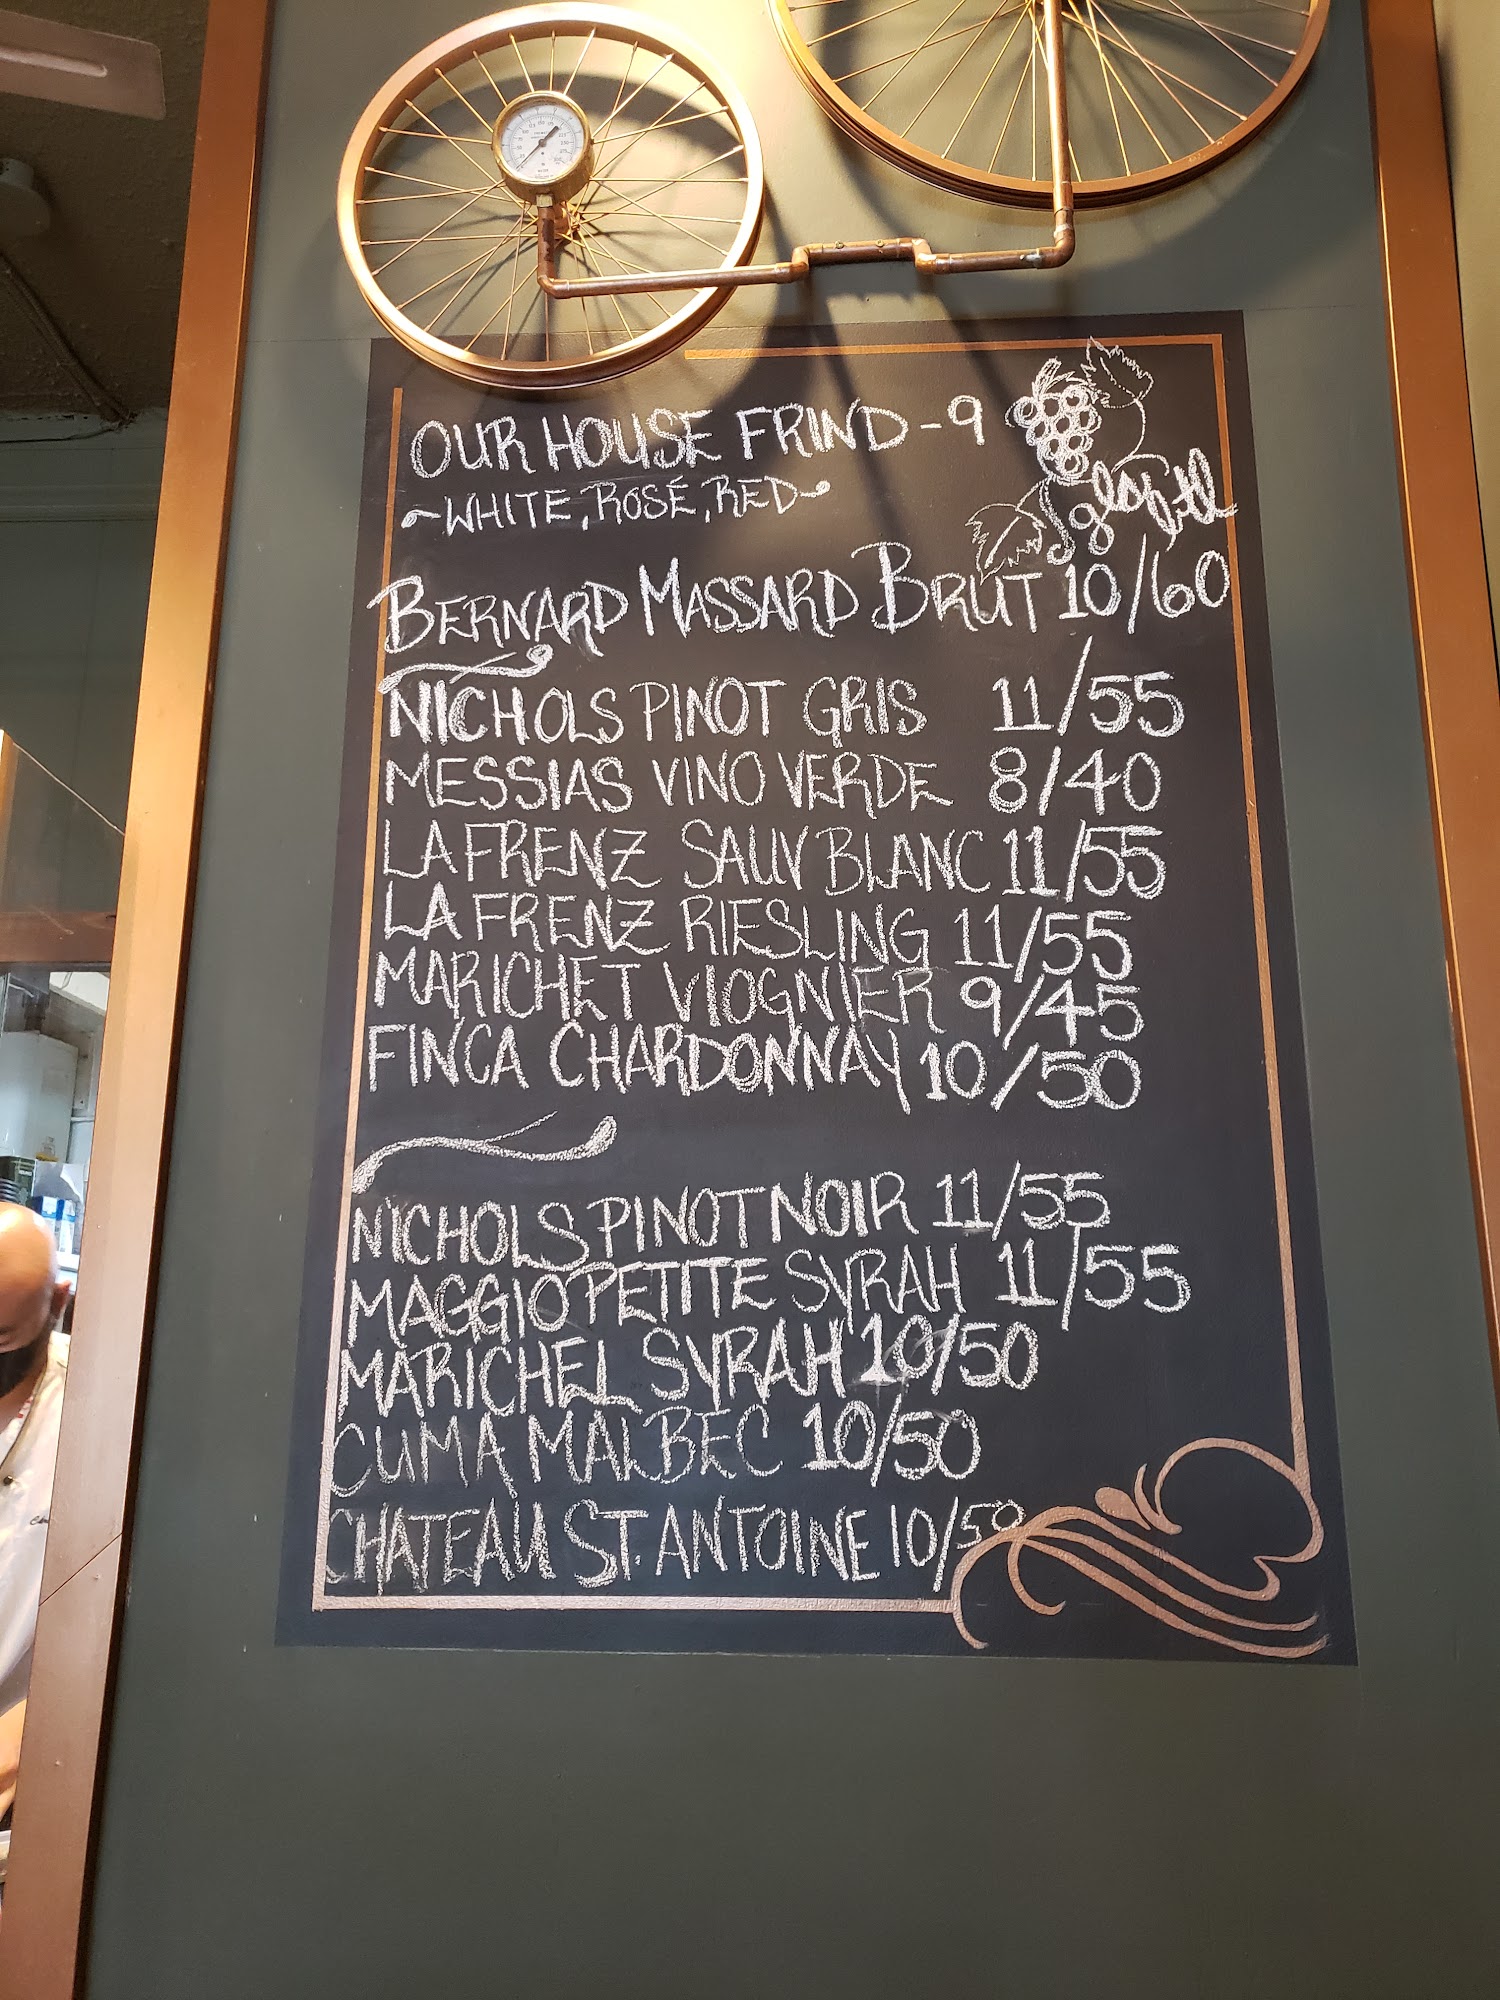 OUR HOUSE FRIND - 9
~WHITE, ROSÉ, RED~
BERNARD MASSARD BRUT 10/60
NICHOLS PINOT GRIS 11/55
MESSIAS VINO VERDE 8/40
LA FRENZ SAUV BLANC 11/55
LA FRENZ RIESLING 11/55
MARICHET VIOGNIER 9/45
FINCA CHARDONNAY 10/50
NICHOLS PINOT NOIR 11/55
MAGGIO PETITE SYRAH 11/55
MARICHEL SYRAH 10/50
CUMA MALBEC 10/50
CHATEAU ST. ANTOINE 10/50